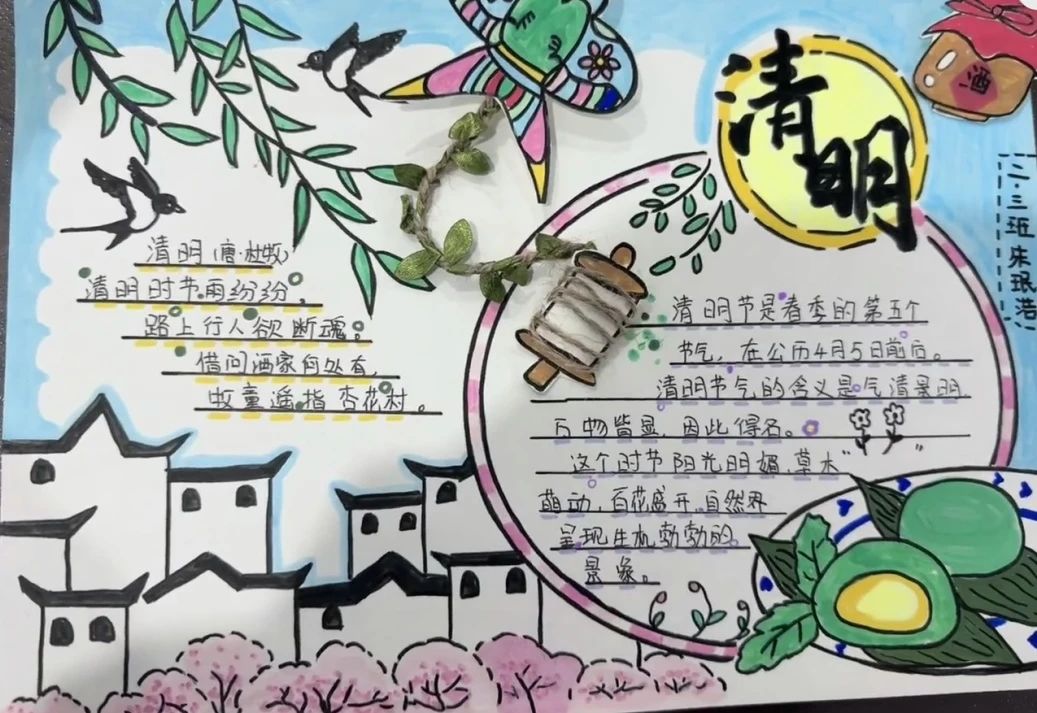 清明
酒
二.三班朱珉浩
清明(唐·杜牧)
清明时节雨纷纷，
路上行人欲断魂。
借问酒家何处有，
牧童遥指杏花村。
清明节是春季的第五个
节气，在公历4月5日前后。
清明节气的含义是气清景明，
万物皆显，因此得名。
这个时节阳光明媚、草木
萌动，百花盛开，自然界
呈现生机勃勃的
景象。